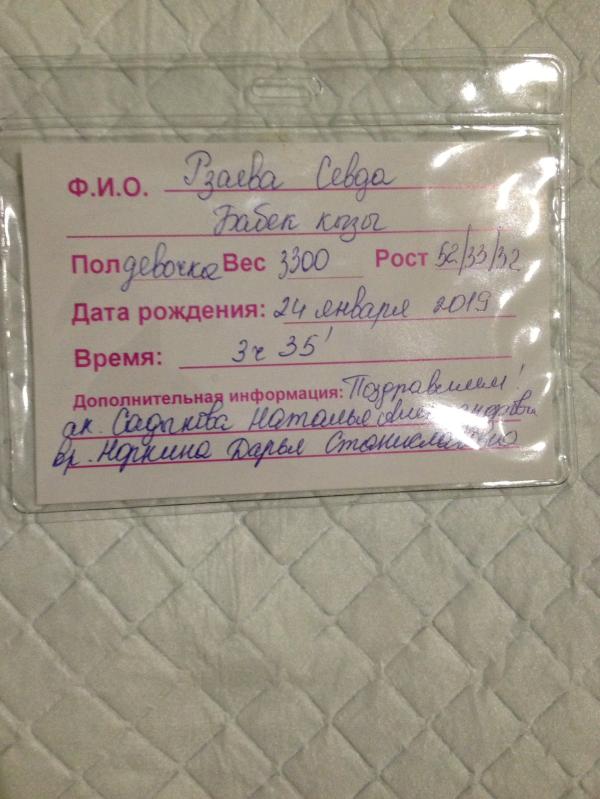 Ф.И.О. Рзаева Севда
Бабек кызы
Пол девочка Вес 3300 Рост 52/33/32
Дата рождения: 24 января 2019
Время: 3ч 35'
Дополнительная информация: Поздравляем!
ак. Садыкова Наталья Александровна
вр. Норкина Дарья Станиславовна